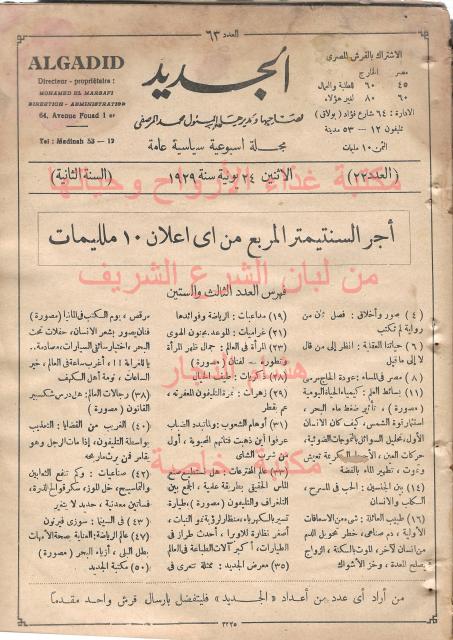 العدد ٦٣
ALGADID
Directeur - propriétaire :
MOHAMED EL MARSAFI
DIRECTION - ADMINISTRATION
64, Avenue Fouad 1 er
Tel : Medinah 53 — 12
الجديد
لصاحبها ومديرها المسئول محمد المرصفى
مجلة اسبوعية سياسية عامة
الاشتراك بالقرش المصرى
مصر الخارج
٤٥ ٦٠ للطلبة والعمال
٦٠ ٨٠ لغير هؤلاء
الادارة : ٦٤ شارع فؤاد (بولاق)
تليفون ١٢ — ٥٣ مدينة
الثمن ١٠ مليمات
(العدد ٢٢) الاثنين ٢٤ يونية سنة ١٩٢٩ (السنة الثانية)
مكتبة غذاء الأرواح وحياتها
أجر السنتيمتر المربع من اى اعلان ١٠ ملليمات
من لبان الشرع الشريف
فهرس العدد الثالث والستين
(٤) صور وأخلاق : فصل ثان من
رواية لم تكتب
(٦) حياتنا العقلية : انظر إلى من قال
لا إلى ما قيل
(٨) مصر فى المساء : عودة الحاج مرسى
(١١) بسائط العلم : كيمياء الحياة اليومية
(مصورة) ، تأثير ضغط ماء البحر ،
استنارة ضوء الشمس ، كيف كان الانسان
الأول ، تحليل السوائل بالموجات الضوئية ،
حركات العين ،
وغوت ، تطهير الماء بالفضة
(١٤) بين الجنسين : الحب فى المسرح ،
الكتاب والانسان
(١٦) طبيب العائلة : شىء من الاسعافات
الأولية ، دم صناعى ، خطر تحويل الدم
من انسان لآخر ، الموت بالسكتة ، الزواج
يصلح المعدة ، وخز الأشواك
(١٩) مداعبات : الرياضة وفوائدها
(٢١) غراميات : الموعد بجنون الهوى
(٢٣) المرأة فى العالم : جمال ظهر المرأة
وتطوره — لفنان (مصورة)
ذكريات : طيف الخيال
(٢٩) زهرات : نمرة التليفون المعفرته ،
عم يفطر
(٣١) أوهام الشعوب : وثائيد الضباب
عرفوا أين ذهبت فتاتهم المحبوبة ، أول
من شرب الشاى
المخترعات : هل تستطيع صنع
الماس الحقيقى بطريقة علمية ، الجمع بين
التلغراف والتليفون (مصورة) ، طيارة
تسير بالكهرباء ، منظار لرؤية ذو النبات ،
أصغر نظارة للاوبرا ، أحدث طراز فى
الطيارات ، أكبر آلات الطباعة فى العالم
(٣٥) معرض الجديد : ممثلة تتعرى فى
مرقص ، يوم السكتب فى المانيا (مصورة)
فنان يصور بشعر الانسان ، حفلات تحت
البحر ، اختبار سائقى السيارات ، مصادمة ..
يا للغرابة !! ، أغرب ساعة فى العالم ، خير
الساعات ، نومة أهل السكهف
(٣٨) رجالات العالم : هل درس شكسبير
القانون (مصورة)
(٤٠) الغريب من القضايا : التعذيب
بواسطة التليفون ، إذا مات الرجل وهو
يقامر فمن يرث مقامره
(٤٢) صناعيات : وكم تنفع الثعابين
والتماسيح ، خل الموز ، سكر قوالح الذرة ،
فساتين معدنية ، حديد لا يتغير
(٤٣) فى السينما : سوزى فيرنون
(٤٧) عالم الرياضة : العناية بصحة الأمهات
بطل البلى ، أزياء البحر (مصورة)
(٥٠) مكتبة الجديد
هشام النجار
مكتبة خاصة
من أراد أى عدد من أعداد «الجديد» فليتفضل بارسال قرش واحد مقدما
٣٢٢٥